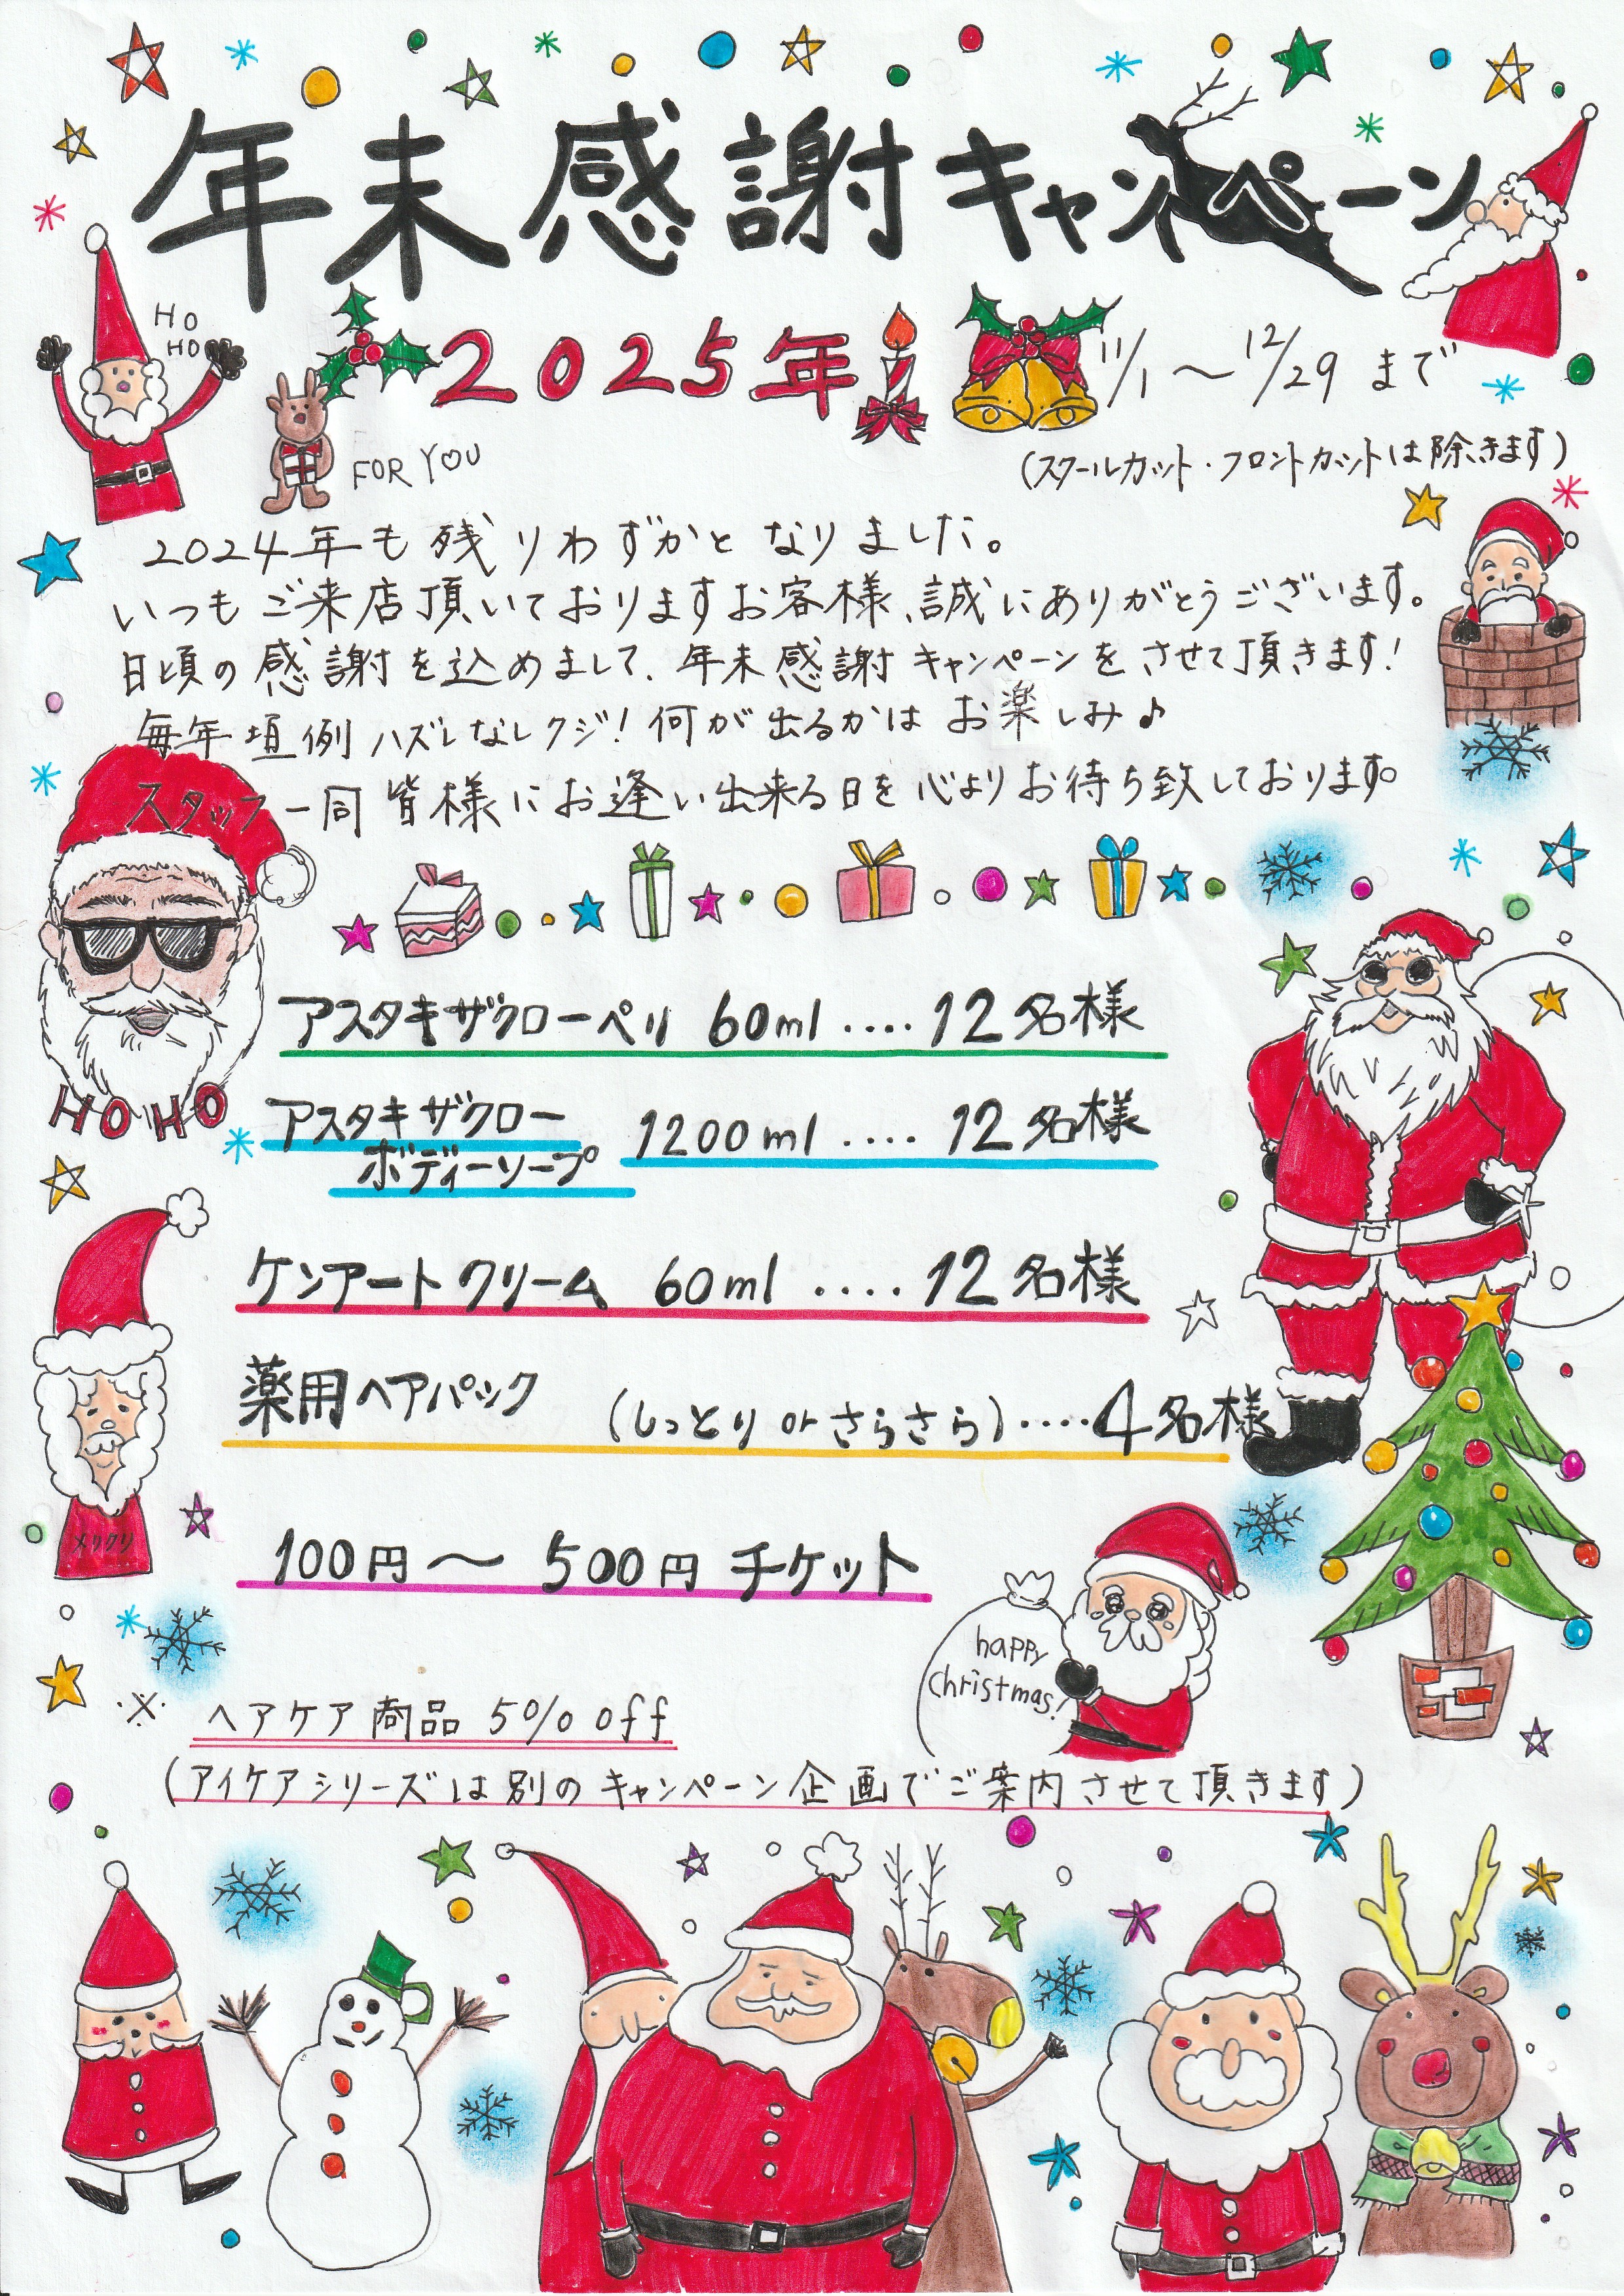 年末感謝キャンペーン
HO
HO
2025年 11/1～12/29 まで
FOR YOU
(スクールカット・フロントカットは除きます)
2024年も残りわずかとなりました。
いつもご来店頂いておりますお客様、誠にありがとうございます。
日頃の感謝を込めまして、年末感謝キャンペーンをさせて頂きます!
毎年恒例ハズレなしクジ!何が出るかはお楽しみ♪
スタッフ一同皆様にお逢い出来る日を心よりお待ち致しております。
HO HO
アスタキザクローペリ 60ml ‥‥ 12名様
アスタキザクロー
ボディーソープ 1200ml ‥‥ 12名様
ケンアートクリーム 60ml ‥‥ 12名様
薬用ヘアパック (しっとり or さらさら)‥‥4名様
メククリ
100円～500円チケット
happy
christmas!
※ ヘアケア商品 5% off
(アイケアシリーズは別のキャンペーン企画でご案内させて頂きます)